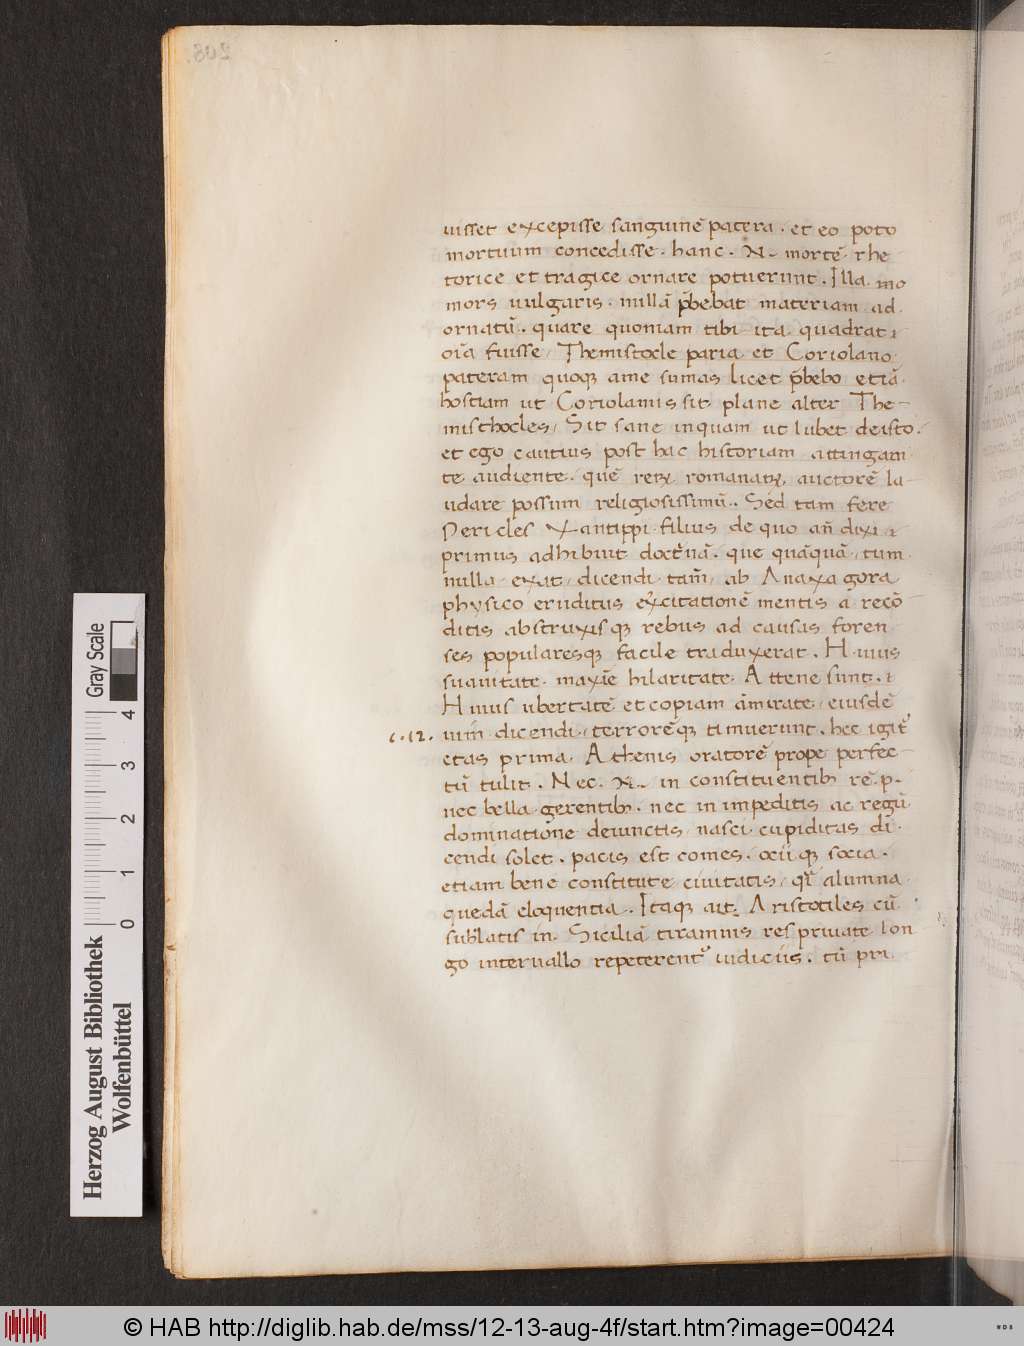 208.
uisset excepisse sanguinē patera. et eo poto
mortuum concedisse. hanc. N. mortē. rhe
torice et tragice ornare potuerunt. Illa. mo
mors uulgaris. nullā p̄bebat materiam ad.
ornatū. quare quoniam tibi ita quadrat.
oīa fuisse, Themistocle paria et Coriolano.
pateram quoqȝ ame sumas licet p̄bebo etiā.
hostiam ut Coriolanus sit plane alter The-
misthocles, Sit sane inquam ut lubet deisto.
et ego cautius post hac historiam attingam.
te audiente. quē rerꝝ romanarꝝ, auctorē la-
udare possum religiosissimū. Sed tam fere
Pericles Xantippi filius de quo añ dixi.
primus adhibuit doct̄nā. que quāquā, tum.
nulla exat, dicendi tam̄, ab Anaxagora
physico eruditus exercitationē mentis a recō
ditis abstruxisqȝ rebus ad causas foren
ses popularesqȝ facile traduxerat. Huius
suauitate. maxīe hilaritate. Attene sunt.
Huius ubertatē et copiam āmirate, eiusdē
c. 12. uim dicendi, terrorēqȝ timuerunt. hec igit᷒
etas prima. Athenis oratorē prope perfec-
tū tulit. Nec. N. in constituentibȝ rē. p.
nec bella gerentibȝ. nec in impeditis ac regū
dominatione deiunctis nasci cupiditas di.
cendi solet. pacis est comes. ociiqȝ socia.
etiam bene constitute ciuitatis, qī alumna.
quedā eloquentia. Itaqȝ ait. Aristotiles cū
sublatis in. Siciliā tirannis res priuate lon
go interuallo repeterent᷒ iudiciis. tū pri.
Gray Scale
4 3 2 1 0
Herzog August Bibliothek
Wolfenbüttel
© HAB http://diglib.hab.de/mss/12-13-aug-4f/start.htm?image=00424